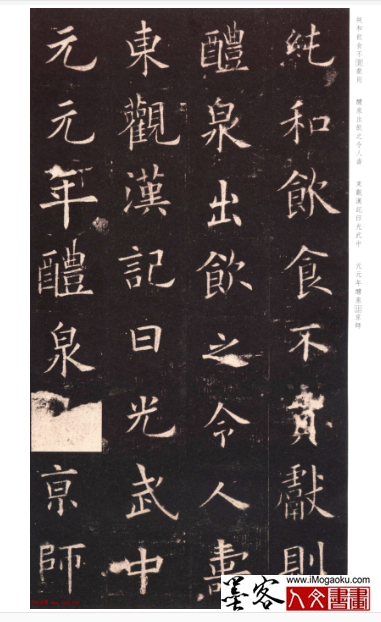 純和飲食不貢獻則
醴泉出飲之令人壽
東觀漢記曰光武中
元元年醴泉亰師
純和飲食不貢獻則 醴泉出飲之令人壽 東觀漢記曰光武中 元元年醴泉出京師
墨客
www.iMogaoku.com
人文書畫